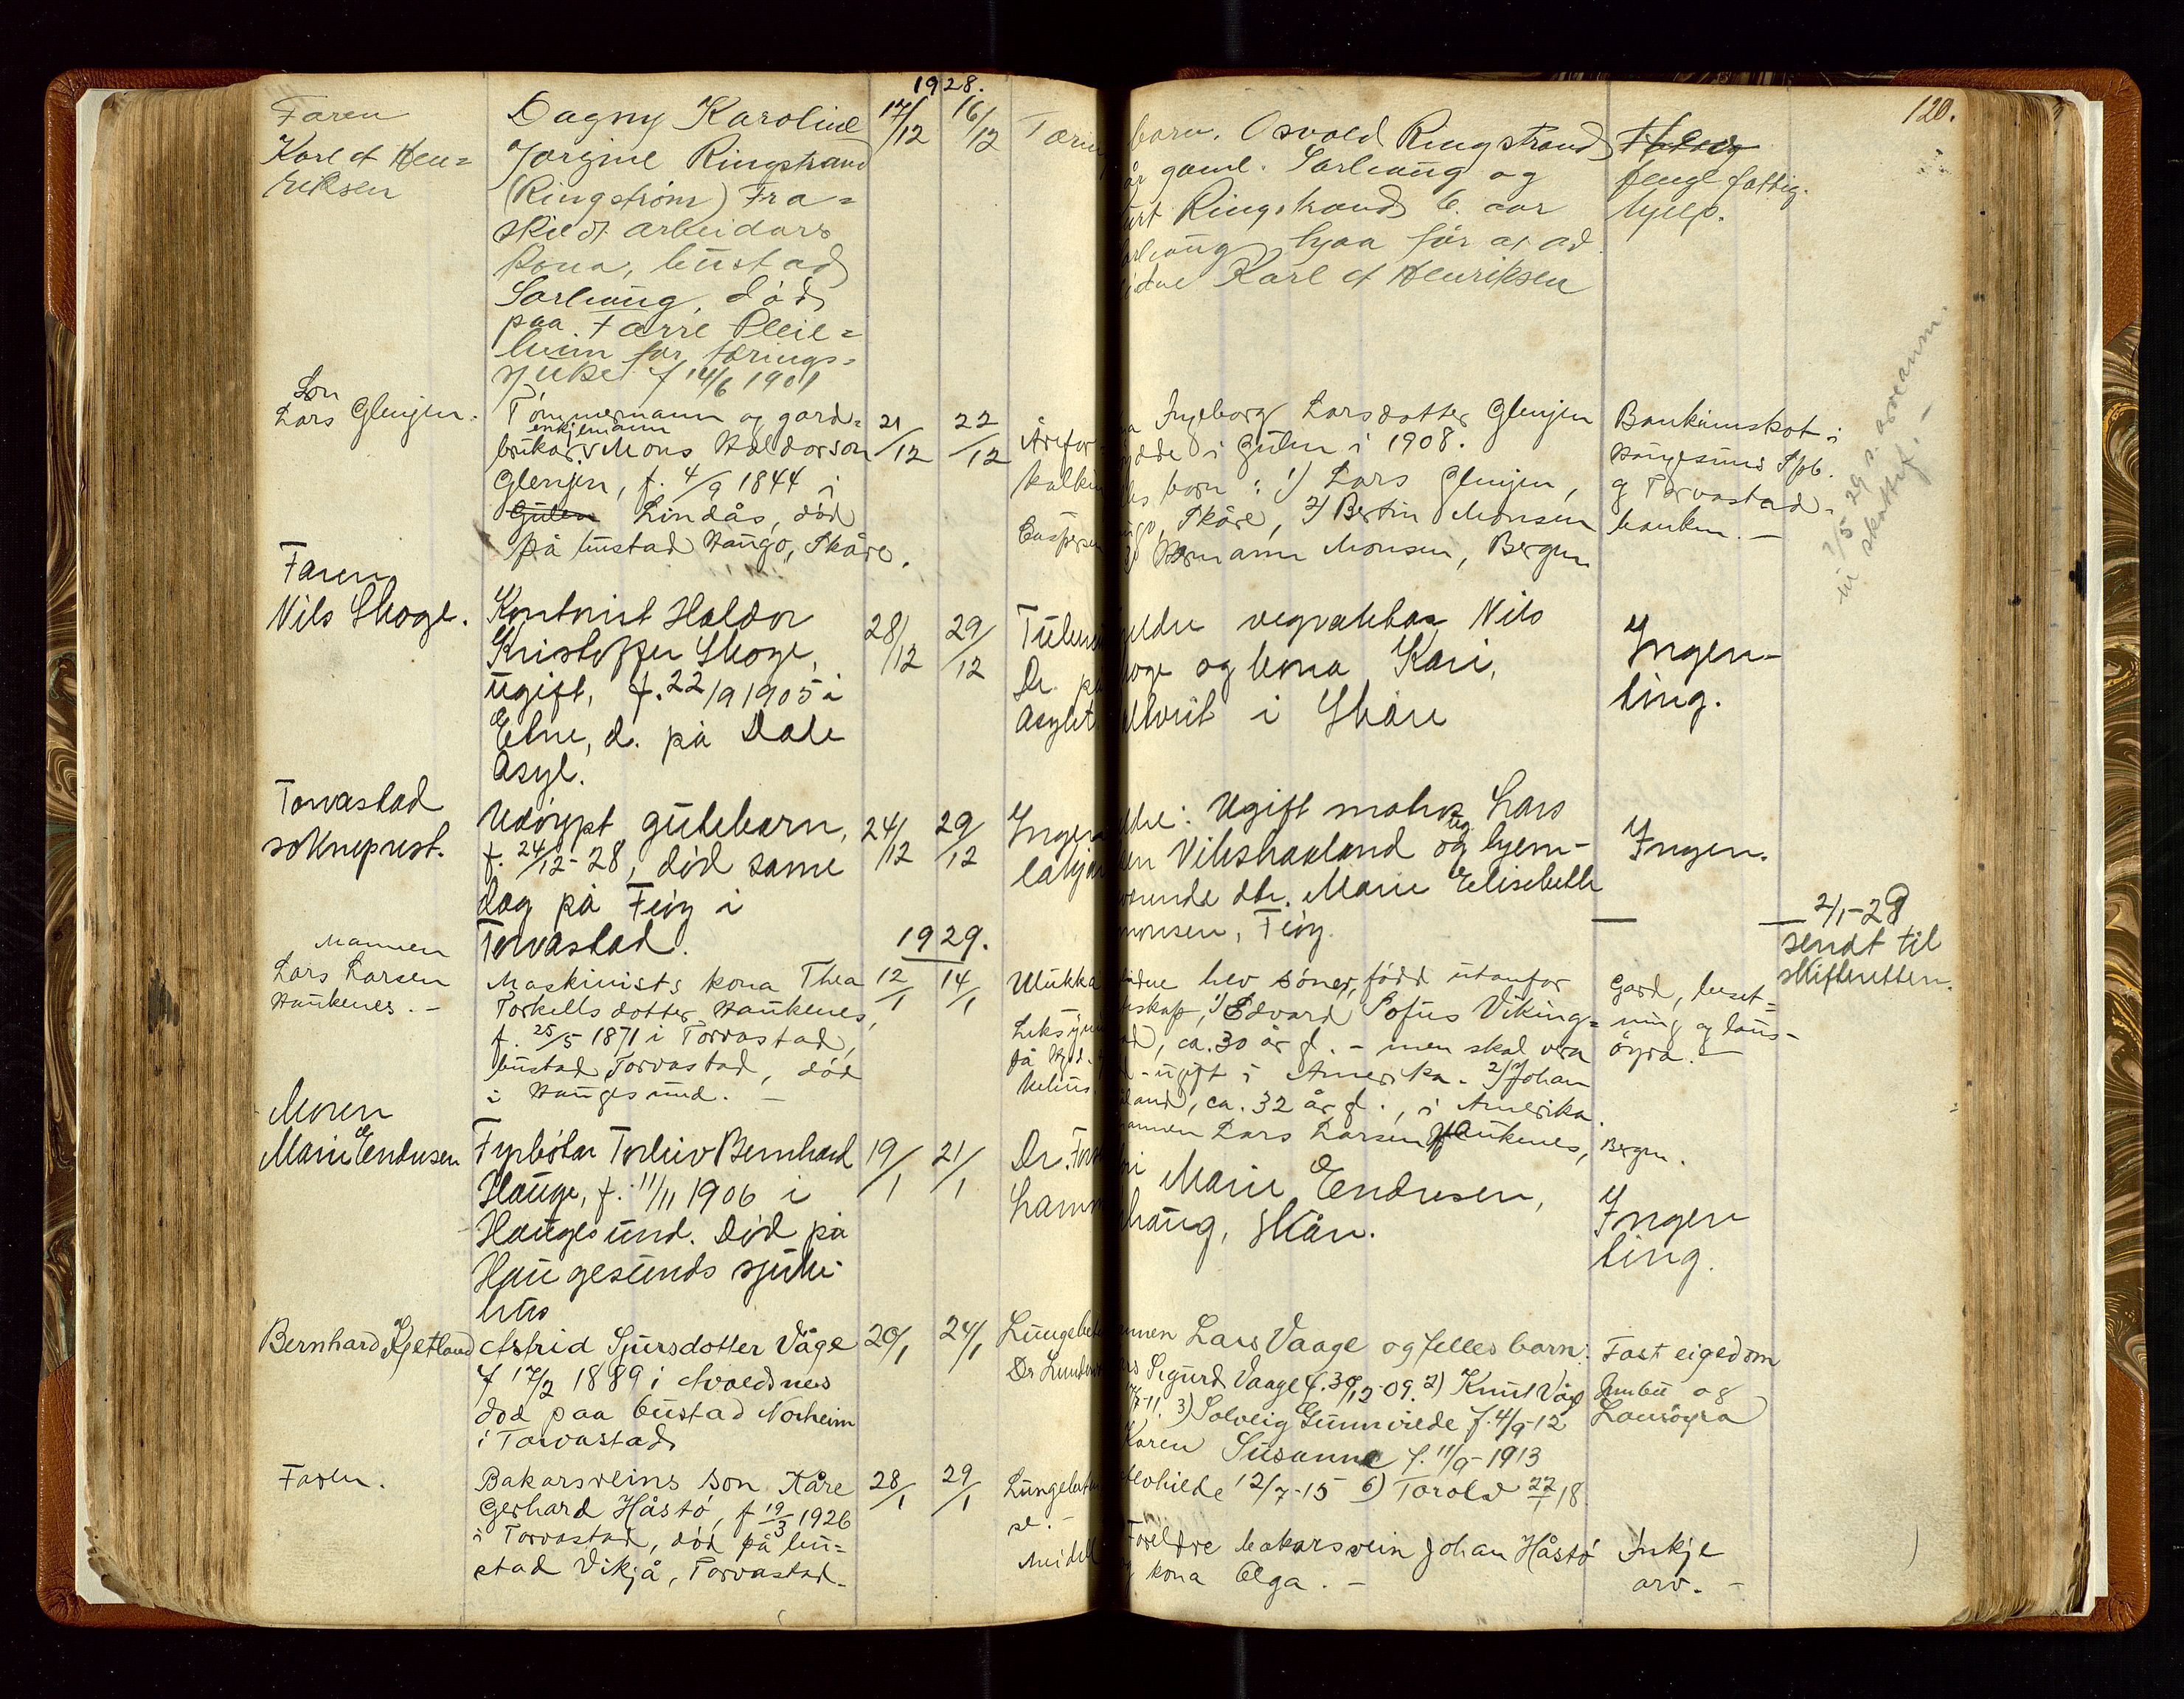 1928.
120.
Faren
Karl A Hen=
riksen
Dagny Karoline
Jorgine Ringstrand
(Ringstrøm) Fra=
skild arbeidars
kona, bustad
Sørhaug, död
paa Færre Pleie=
heim for tærings=
sjuke f 14/6 1901
17/12
16/12
Tæring
born. Osvald Ringstrand
år gaml. Sørhaug og
Ringstrand 6. aar
Sørhaug hjaa før at ad
Karl A Henriksen
fenge fattig-
hjelp.
Son
Lars Glenjen.
Tömmermann og gard=
enkjemann
brukar Mons Haldorson
Glenjen, f. 4/9 1844 i
Gulen Lindås, död
på bustad Haugo, Skåre.
21/12
22/12
Årefor
kalkin
Caspersen
Ingeborg Larsdotter Glenjen
dde i Gulen i 1908.
born: 1) Lars Glenjen,
Skåre, 2) Bertin Monsen
3) Hermann Monsen, Bergen
Bankinnskot i
Haugesunds Spb.
og Torvastad-
banken. -
Faren
Nils Skoge.
Kontorist Haldor
Kristoffer Skoge,
ugift, f. 22/9 1905 i
Etne, d. på Dale
Asyl.
28/12
29/12
Dr. på
Asylet.
eldre vegvaktar Nils
oge og kona Kari,
i Skåre
Ingen-
ting.
Torvastad
sokneprest.
Udöypt gutebarn,
f. 24/12-28, död same
dag på Feöy i
Torvastad.
24/12
29/12
Ingen
ldre: Ugift matros Lars
en Vikshaaland og hjem-
Marie Elisebeth
monsen, Feöy.
Ingen.
2/1-29
sendt til
skifteretten.
1929.
Mannen
Lars Larsen
Haukenes. -
Maskinists kona Thea
Torkellsdotter Haukenes,
f. 25/5 1871 i Torvastad,
bustad Torvastad, död
i Haugesund. -
12/1
14/1
Ulukka
hev söner, född utanfor
skap, 1) Edvard Sofus Viking=
ca. 30 år gl. - men skal vera
ugift i Amerika. 2) Johan
land, ca. 32 år gl., i Amerika.
Lars Larsen Haukenes,
Gard, buset=
ning og laus-
öyra. -
Bergen.
Moren
Marie Endresen
Fyrbötar Torleiv Bernhard
Hauge, f. 11/11 1906 i
Haugesund. Död på
Haugesunds sjuke-
hus
19/1
21/1
Dr.
Marie Endresen,
haug, Skåre.
Ingen
ting.
Bernhard Kjetland
Astrid Sjursdotter Våge
f 17/2 1889 i Avaldsnes
död paa bustad Norheim
i Torvastad
20/1
24/1
Lungebet
Dr Lunde
Lars Vaage og felles barn:
Sigurd Vaage f. 30/12-09. 2) Knut Våge
3) Solveig Gunnvilde f. 4/9-12
Karen Susanne f. 11/9-1913
12/7-15 6) Torold 22/1 18
Fast eigedom
Innbu og
Lausöyra
Faren.
Bakarsveins son Kåre
Gerhard Håstö, f 19/3 1926
i Torvastad, död på bu=
stad Vikjå, Torvastad.
28/1
29/1
Lungebeten
se. -
Foreldre bakarsvein Johan Håstö
og kona Olga. -
Inkje
arv. -